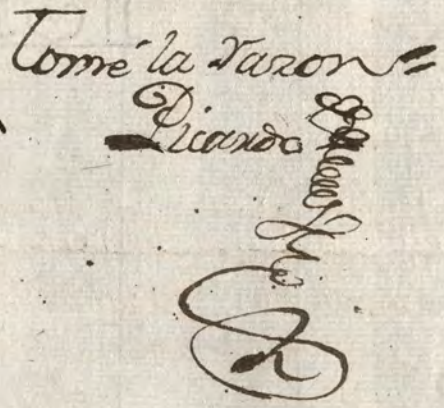 Tomé la razon=
Picardo